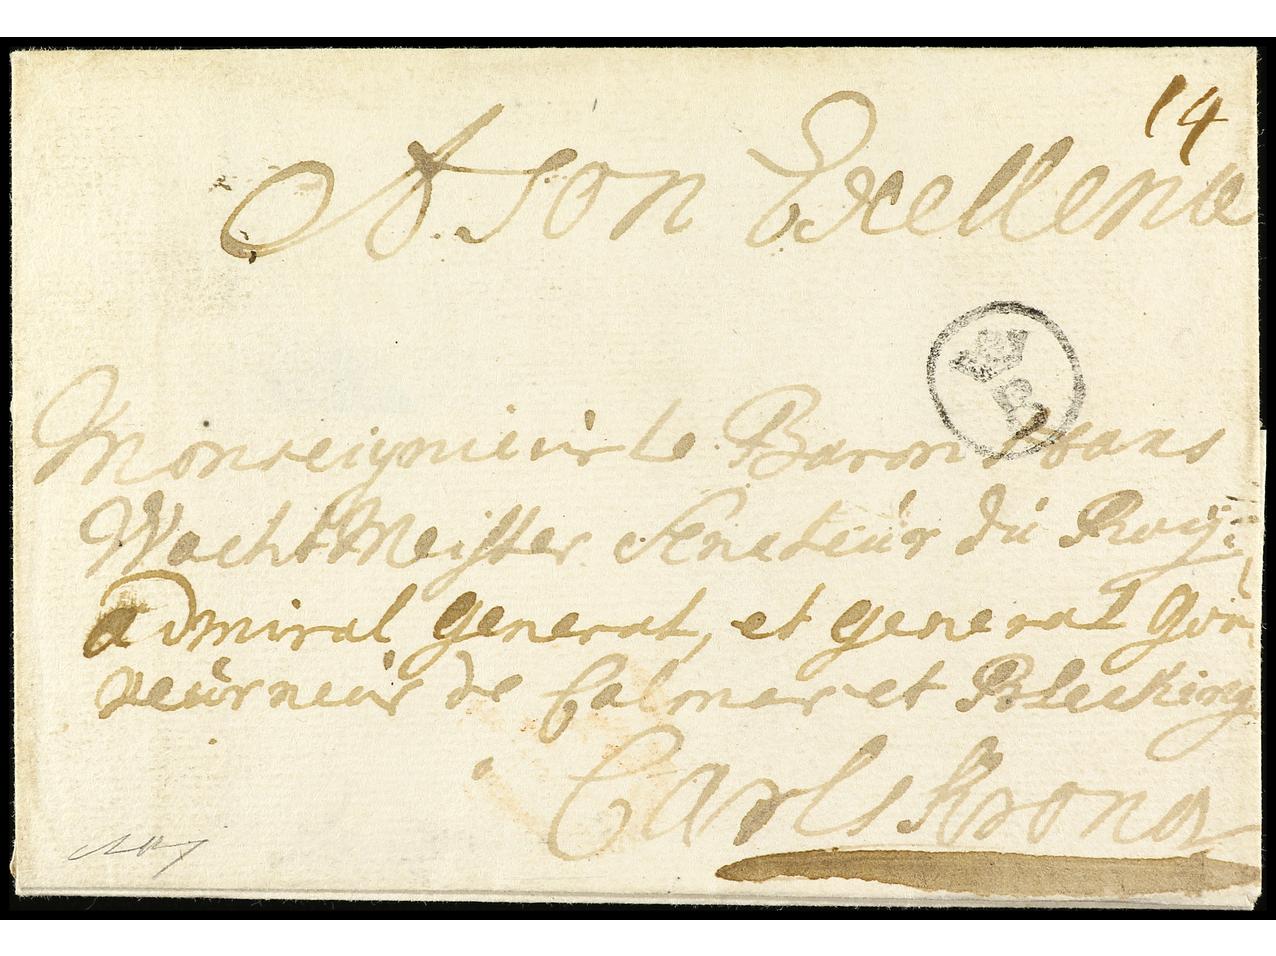 14
A son Excellence
R
Monseignieur le Baron Hans
WachtMeister Senateur du Roÿ:
admiral general, et general Gou
verneur de Calmar et Blecking
Carlskrona